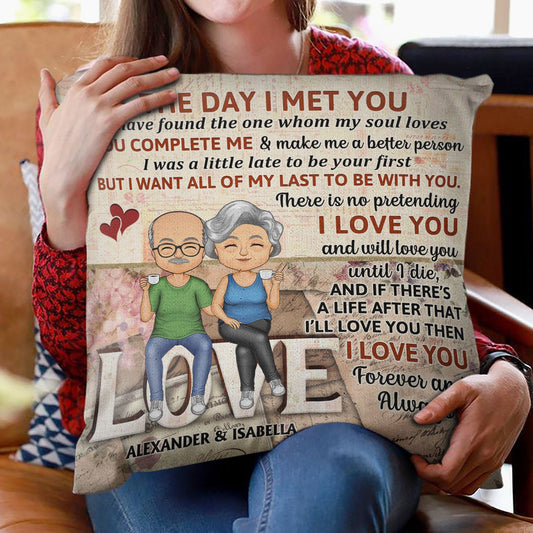 THE DAY I MET YOU
have found the one whom my soul loves
YOU COMPLETE ME & make me a better person
I was a little late to be your first
BUT I WANT ALL OF MY LAST TO BE WITH YOU.
There is no pretending
I LOVE YOU
and will love you
until I die,
AND IF THERE'S
A LIFE AFTER THAT
I'LL LOVE YOU THEN
I LOVE YOU
Forever an
Alwa
LOVE
ALEXANDER & ISABELLA